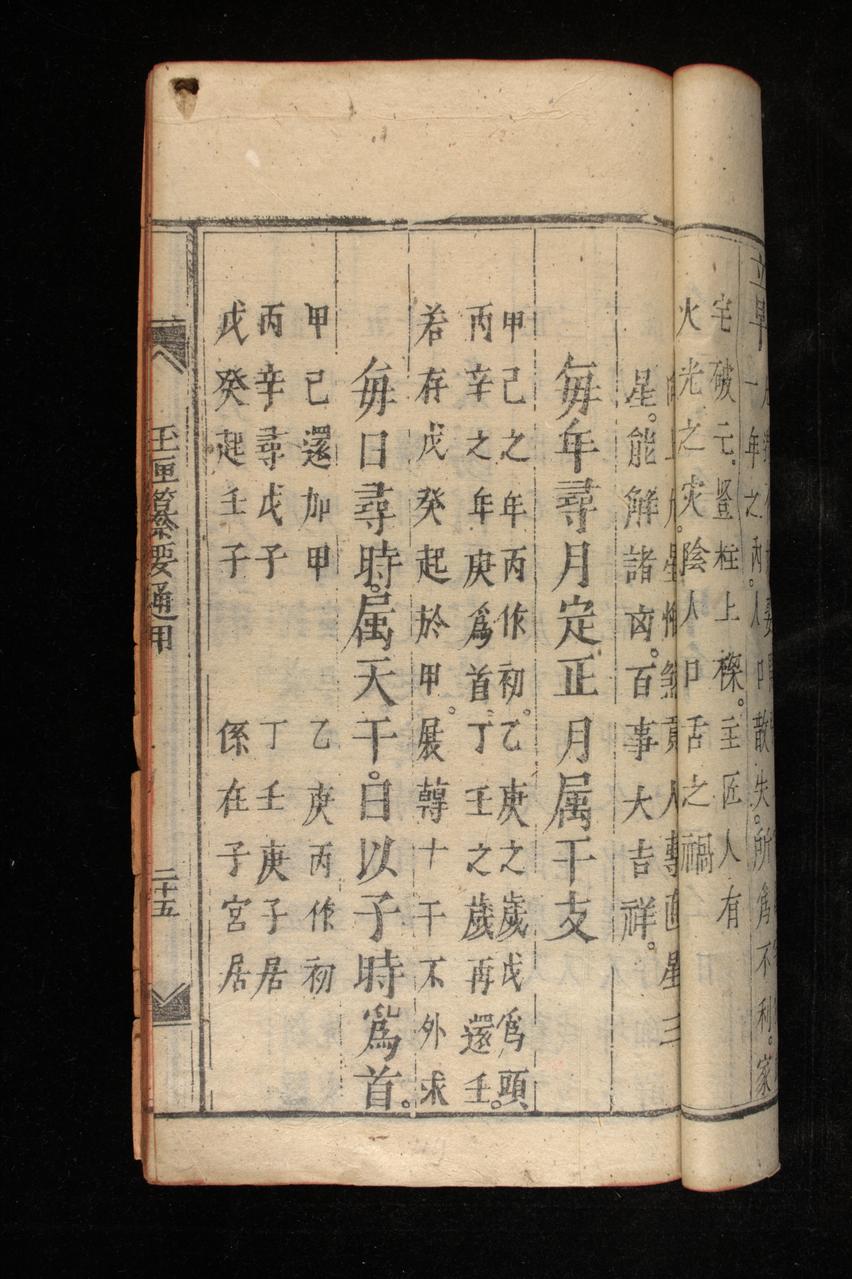 立早
一年之內。人口散失。所爲不利。家
宅破元。豎柱上樑。主匠人有
火光之灾。陰人口舌之禍
上九星惟煞貢人專直星三
星。能解諸凶。百事大吉祥。
每年尋月定正月属干支
甲己之年丙作初。乙庚之歲戊爲頭
丙辛之年庚爲首。丁壬之歲再還壬。
若存戊癸起於甲。展轉十干不外求
每日尋時。属天干。日以子時爲首。
甲己還加甲　乙庚丙作初
丙辛尋戊子　丁壬庚子居
戊癸起壬子　係在子宮居
玉匣纂要通用　二十五